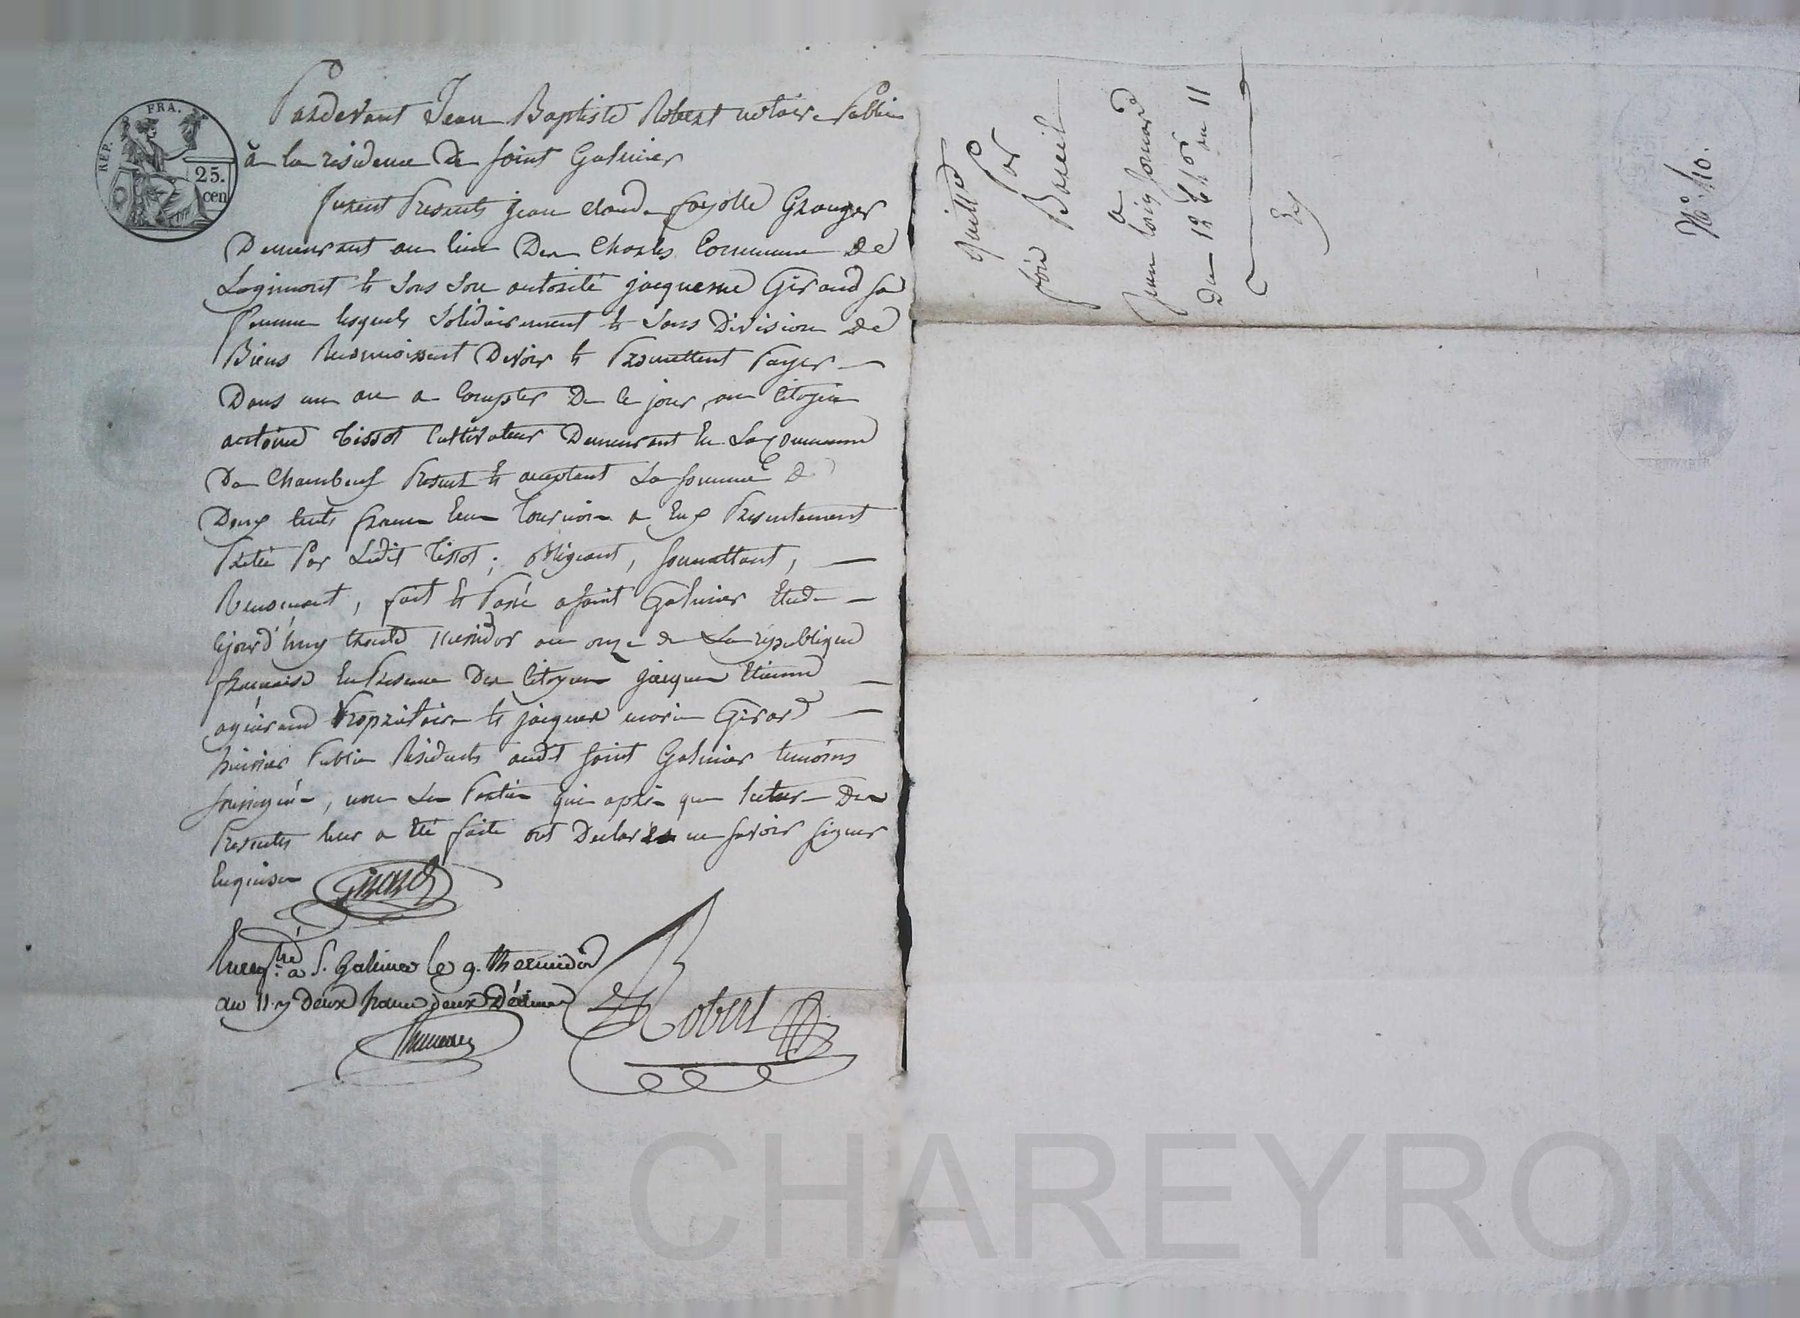 REP. FRA.
25.
cen
Pardevant Jean Baptiste Robert notaire Public
à la residence de Saint Galmier
furent Presents jean claude fayolle Granger
Demeurant au lieu Des Charles Commune de
et sous son autorité jacqueme Giraud sa
femme lesquels Solidairement et sans Division de
Biens Reconnoissent Devoir et Promettent Payer
Dans un an a Compter De ce jour, au Citoyen
antoine Tissot Cultivateur Demeurant en La Commune
De Chambeuf Present et acceptant La somme de
Deux Cents francs a Eux Presentement
Prêtée Par Ledit Tissot ; obligeant, soumettant,
Renonçant, fait et Passé a Saint Galmier Etude
cejourd'huy trente messidor an onze de La république
française En Presence Des Citoyens jacques Etienne
Propriétaire et jacques marie Girard
huissier Public Residents audit Saint Galmier temoins
soussignés, non Les Parties qui après que lecture Des
Presentes leur a été faite ont Declaré ne savoir signer
Enquises
Girard
Enregtré a S. Galmier le 9. thermidor
an 11. deux francs deux Décimes
Robert
quittée
Par
a
Du 12 an 11
N° 40.
Pascal CHAREYRON